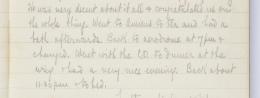 He was very decent about it all & congratulated us on
the whole thing. Went to Eurdus to tea and had a
bath afterwards. Back to aerodrome at 7pm &
changed. Went with the C.O. to dinner at the
wing & had a very nice evening. Back about
11.30pm & to bed.